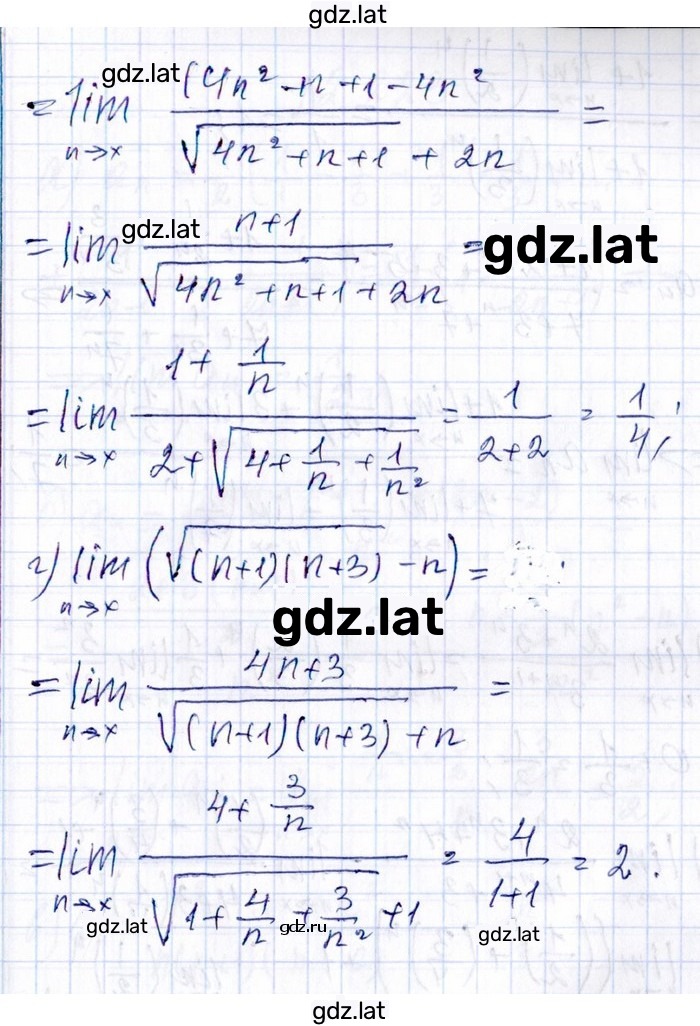 gdz.lat
gdz.lat
= lim n→x (4n² - n + 1 - 4n² / √4n² + n + 1 + 2n =
gdz.lat
= lim n→x n+1 / √4n² + n + 1 + 2n =
gdz.lat
= lim n→x 1 + 1/n / 2 + √4 + 1/n + 1/n² = 1 / 2+2 = 1/4;
г) lim n→x (√(n+1)(n+3) - n) =
gdz.lat
= lim n→x 4n+3 / √(n+1)(n+3) + n =
= lim n→x 4 + 3/n / √1 + 4/n + 3/n² + 1 = 4 / 1+1 = 2.
gdz.lat gdz.ru gdz.lat
gdz.lat